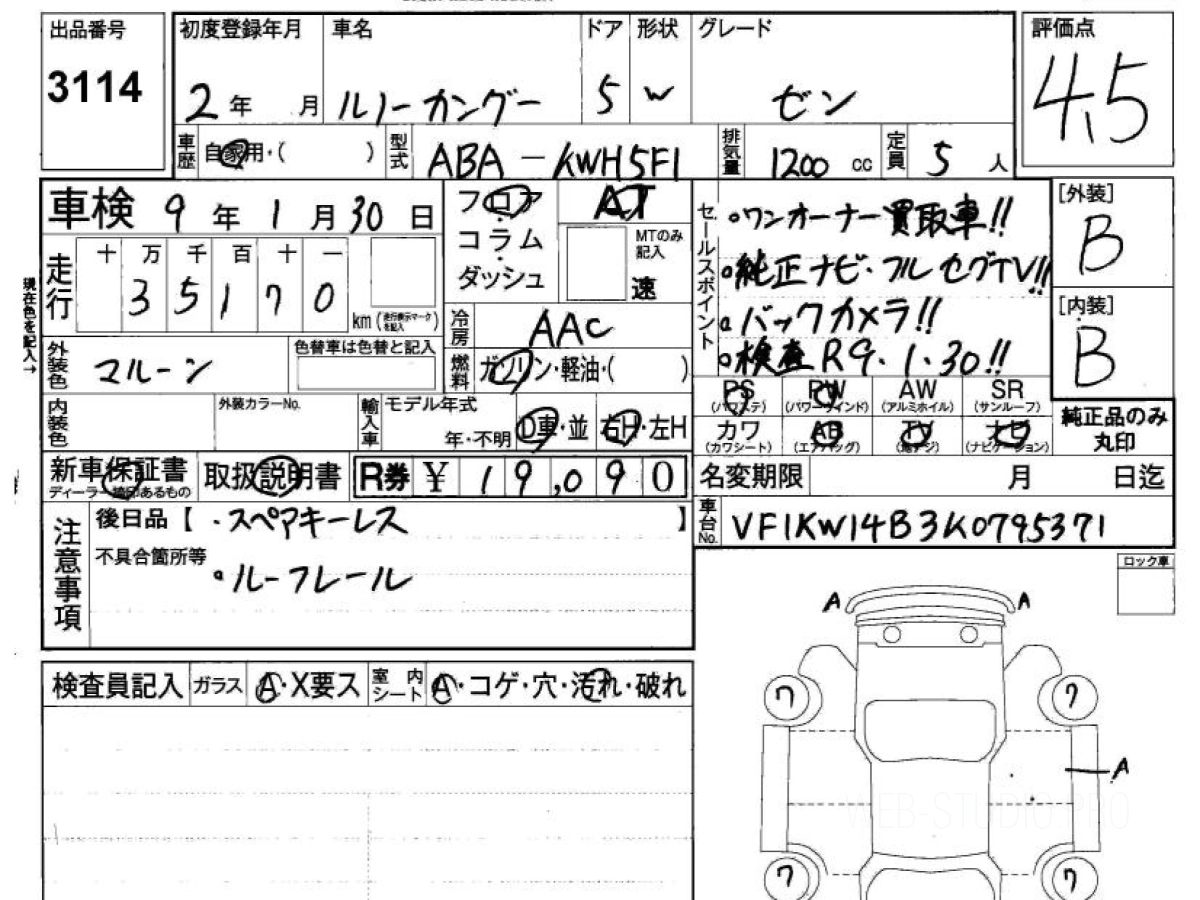 出品番号
3114
初度登録年月 車名 ドア 形状 グレード
2年 月 ルノーカングー 5 W ゼン
評価点
4.5
車歴 自家用・( ) 型式 ABA-KWH5F1 排気量 1200 cc 定員 5 人
車検 9年1月30日
フロア
コラム
ダッシュ
AT
MTのみ記入
速
セールスポイント
・ワンオーナー買取車!!
・純正ナビ・フルセグTV!!
・バックカメラ!!
・検査R9.1.30!!
[外装]
B
[内装]
B
現在色を記入→
走行 十 万 千 百 十 一
3 5 1 7 0 km (走行表示マークを記入)
冷房 AAC
外装色 マルーン 色替車は色替と記入
燃料 ガソリン・軽油・( )
PS (パワステ) PW (パワーウインド) AW (アルミホイル) SR (サンルーフ)
カワ (カワシート) AB (エアバッグ) TV (地デジ) ナビ (ナビゲーション)
純正品のみ
丸印
内装色 外装カラーNo. 輸入車 モデル年式
年・不明 D車・並 右H・左H
新車保証書
ディーラー捺印あるもの
取扱説明書 R券 ¥ 19,090
名変期限 月 日迄
車台No. VF1KW14B3K0795371
注意事項
後日品【 ・スペアキーレス 】
不具合箇所等
・ルーフレール
ロック車
検査員記入 ガラス A・X要ス 室内シート A・コゲ・穴・汚れ・破れ
A A
ワ ワ
A
WEB-STUDIO.PRO
ワ ワ